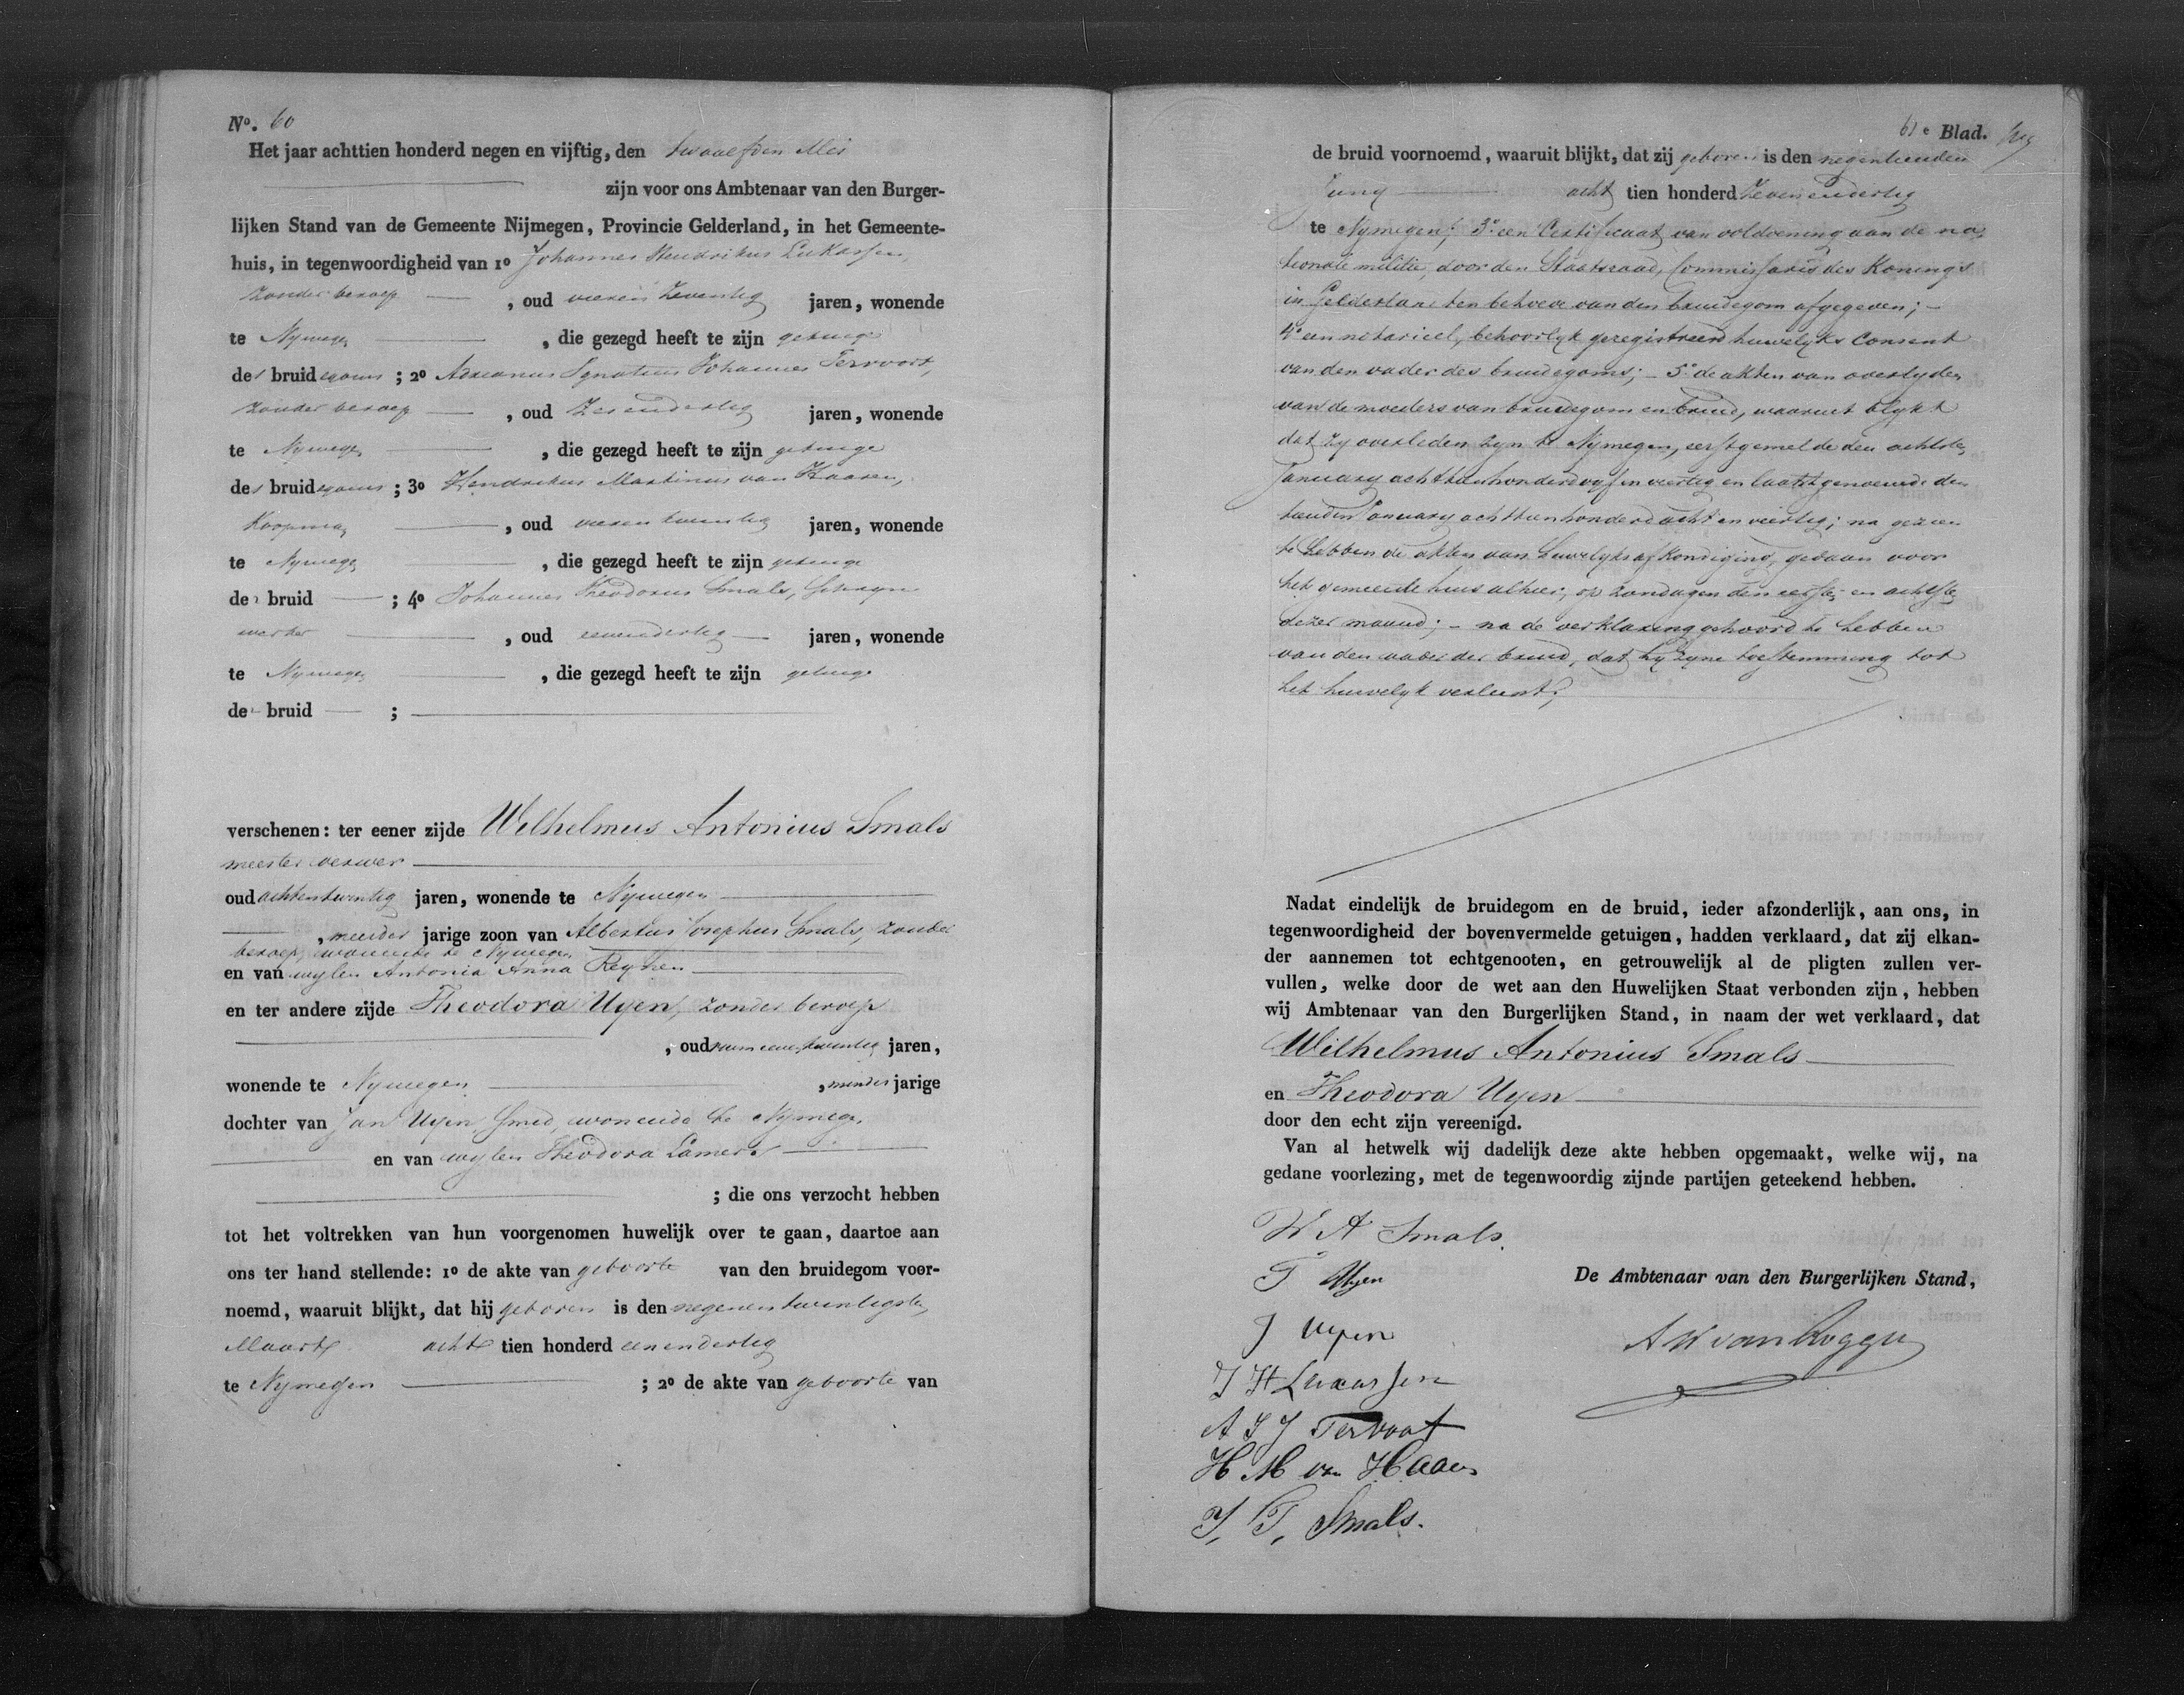 No. 60
Het jaar achttien honderd negen en vijftig, den twaalfden Mei
zijn voor ons Ambtenaar van den Burger-
lijken Stand van de Gemeente Nijmegen, Provincie Gelderland, in het Gemeente-
huis, in tegenwoordigheid van 1o Johannes Hendrikus Lukassen,
zonder beroep , oud vierenzeventig jaren, wonende
te Nymegen , die gezegd heeft te zijn getuige
des bruidegoms ; 2o Adrianus Ignatius Johannes Tervoort,
zonder beroep , oud zesendertig jaren, wonende
te Nymegen , die gezegd heeft te zijn getuige
des bruidegoms ; 3o Hendrikus Martinus van Haaren,
Koopman , oud vierentwintig jaren, wonende
te Nymegen , die gezegd heeft te zijn getuige
der bruid ; 4o Johannes Theodorus Smals, Schryn
werker , oud eenendertig jaren, wonende
te Nymegen , die gezegd heeft te zijn getuige
der bruid ;
verschenen: ter eener zijde Wilhelmus Antonius Smals
meester verwer
oud achtentwintig jaren, wonende te Nymegen
, meerder jarige zoon van Albertus Josephus Smals, zonder
beroep, wonende te Nymegen
en van wylen Antonia Anna Reynen
en ter andere zijde Theodora Uyen, zonder beroep
, oud eenentwintig jaren,
wonende te Nymegen , minder jarige
dochter van Jan Uyen, Smid, wonende te Nymegen
en van wylen Theodora Lamers
; die ons verzocht hebben
tot het voltrekken van hun voorgenomen huwelijk over te gaan, daartoe aan
ons ter hand stellende: 1o de akte van geboorte van den bruidegom voor-
noemd, waaruit blijkt, dat hij geboren is den negenentwintigsten
Maart acht tien honderd eenendertig
te Nymegen ; 2o de akte van geboorte van
61e Blad.
de bruid voornoemd, waaruit blijkt, dat zij geboren is den negentienden
Juny acht tien honderd zevenendertig
te Nymegen; 3o een Certificaat van voldoening aan de na-
tionale militie, door den Staatsraad, Commissaris des Konings
in Gelderland ten behoeve van den bruidegom afgegeven; -
4o een notarieel, behoorlyk geregistreerd huwelyks Consent
van den vader des bruidegoms; - 5o de akten van overlyden
van de moeders van bruidegom en bruid, waaruit blykt
dat zy overleden zyn te Nymegen, eerstgemelde den achtsten
January achttienhonderd vyf en veertig en laatstgenoemde den
tienden January achttienhonderd acht en veertig; na gezien
te hebben de akten van huwelyksafkondiging, gedaan voor
het gemeente huis alhier, op zondagen den eersten en achtsten
dezer maand; - na de verklaring gehoord te hebben
van den vader der bruid, dat hy zyne toestemming tot
het huwelyk verleent;
Nadat eindelijk de bruidegom en de bruid, ieder afzonderlijk, aan ons, in
tegenwoordigheid der bovenvermelde getuigen, hadden verklaard, dat zij elkan-
der aannemen tot echtgenooten, en getrouwelijk al de pligten zullen ver-
vullen, welke door de wet aan den Huwelijken Staat verbonden zijn, hebben
wij Ambtenaar van den Burgerlijken Stand, in naam der wet verklaard, dat
Wilhelmus Antonius Smals
en Theodora Uyen
door den echt zijn vereenigd.
Van al hetwelk wij dadelijk deze akte hebben opgemaakt, welke wij, na
gedane voorlezing, met de tegenwoordig zijnde partijen geteekend hebben.
W A Smals.
T Uyen
De Ambtenaar van den Burgerlijken Stand,
J Uyen
J H Lukassen
A I J Tervoort
H M van Haaren
J. T. Smals.